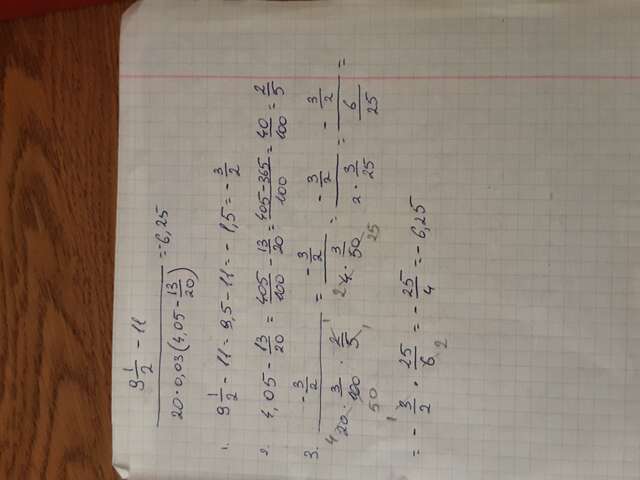 9 1/2 - 11 / 20 · 0,03 (4,05 - 13/20) = -6,25
1. 9 1/2 - 11 = 9,5 - 11 = - 1,5 = - 3/2
2. 4,05 - 13/20 = 405/100 - 13/20 = 405-365/100 = 40/100 = 2/5
3. - 3/2 / 20 · 3/100 · 2/5 = - 3/2 / 4 · 3/50 = - 3/2 / 2 · 3/25 = - 3/2 / 6/25 =
4 50 1 1 2 25
= - 3/2 · 25/6 = - 25/4 = - 6,25
1 2